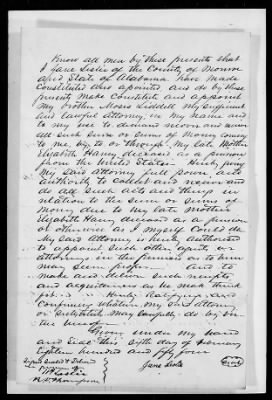 Know all men by these presents that
I Jane Sister of the County of Monroe
and State of Alabama have made
Constituted and appointed and do by these
presents make Constitute and appoint
my brother Moses Liddell my sufficient
and lawful attorney in my name and
to my use to demand recover and
all such sum or sums of money coming
to me, by, to or through my late Mother
Elizabeth deceased as a pension
from the United States giving
my said attorney full power and
authority to collect and receive and
do all such acts and things in
relation to the sum or sums of
money due to my late mother
Elizabeth deceased as a pension
or otherwise as I myself could do
My said attorney is hereby authorized
to appoint such other agents or
attorneys in the premises as to him
may seem proper and to
make and deliver such receipts
and acquittances as he may think
Hereby Ratifying and
Confirming whatever my said attorney
or substitute may lawfully do by
the
Given under my hand
and seal this sixth day of
eighteen hundred and fifty four
Signed sealed &
Jane
Thompson